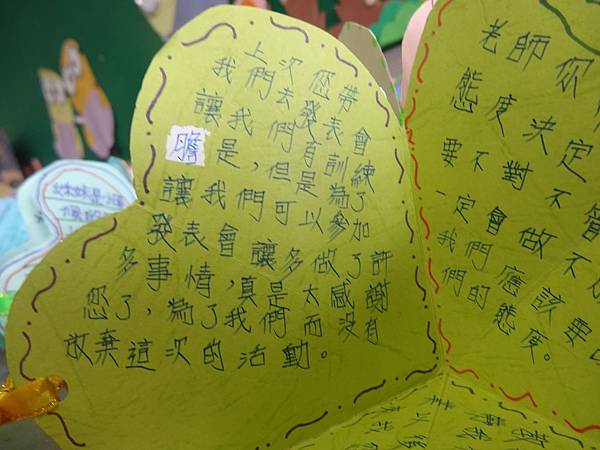 上次您帶
我們去發表會
讓我們有訓練
膽是，但是為了
讓我們可以參加
發表會讓多做了許
多事情，真是太感謝
您了，為了我們而沒有
放棄這次的活動。
老師你
態度決定
要不對不管
一定會做不
我們應該要
們的態度。